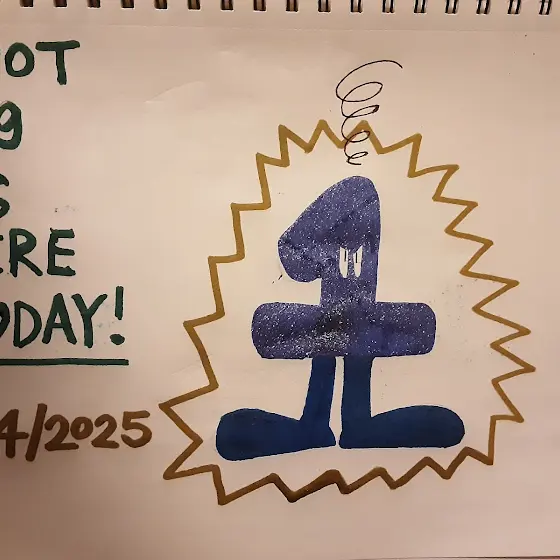 OT
9
S
ERE
ODAY!
4/2025
1